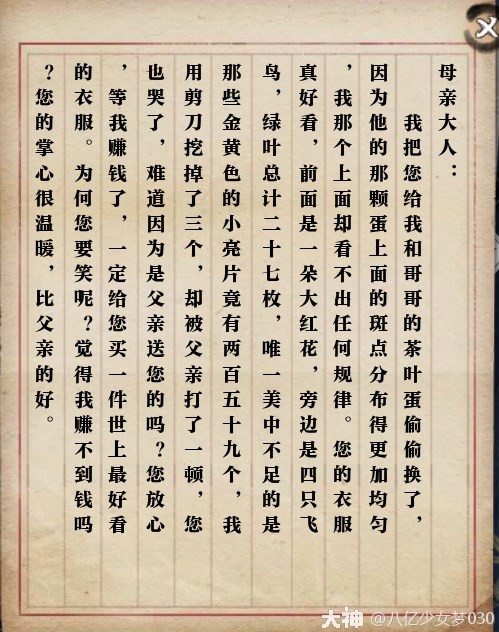 母亲大人：
我把您给我和哥哥的茶叶蛋偷偷换了，
因为他的那颗蛋上面的斑点分布得更加均匀
，我那个上面却看不出任何规律。您的衣服
真好看，前面是一朵大红花，旁边是四只飞
鸟，绿叶总计二十七枚，唯一美中不足的是
那些金黄色的小亮片竟有两百五十九个，我
用剪刀挖掉了三个，却被父亲打了一顿，您
也哭了，难道因为是父亲送您的吗？您放心
，等我赚钱了，一定给您买一件世上最好看
的衣服。为何您要笑呢？觉得我赚不到钱吗
？您的掌心很温暖，比父亲的好。
大神 @八亿少女梦030